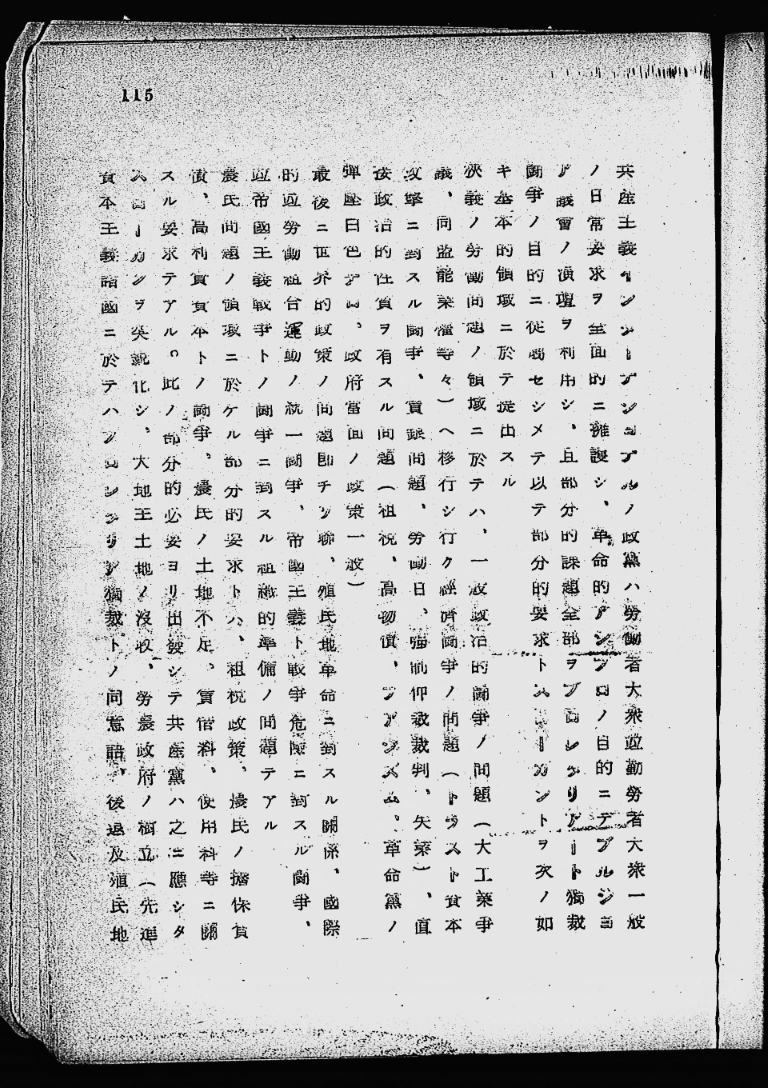 115
共産主義インターナショナルノ政黨ハ勞働者大衆竝勤勞者大衆一般
ノ日常要求ヲ全面的ニ擁護シ、革命的アジプロノ目的ニテブルジヨ
ア議會ノ演壇ヲ利用シ、且部分的課題全部ヲプロレタリアート獨裁
鬪爭ノ目的ニ從屬セシメテ以テ部分的要求トスローガントヲ次ノ如
キ基本的領域ニ於テ提出スル
狹義ノ勞働問題ノ領域ニ於テハ、一般政治的鬪爭ノ問題(大工業爭
議、同盟罷業權等々)ヘ移行シ行ク經濟鬪爭ノ問題(トラスト資本
攻撃ニ對スル鬪爭、賃銀問題、勞働日、強制仲裁裁判、失業)、直
接政治的性質ヲ有スル問題(租税、高物價、フアシズム、革命黨ノ
彈壓白色テロ、政府當面ノ政策一般)
最後ニ世界的政策ノ問題卽チソ聯、殖民地革命ニ對スル關係、國際
的竝勞働組合運動ノ統一鬪爭、帝國主義ト戰爭危險ニ對スル鬪爭、
竝帝國主義戰爭トノ鬪爭ニ對スル組織的準備ノ問題テアル
農民問題ノ領域ニ於ケル部分的要求トハ、租税政策、農民ノ擔保負
債、高利貸資本トノ鬪爭、農民ノ土地不足、賃借料、使用料等ニ關
スル要求テアル。此ノ部分的必要ヨリ出發シテ共産黨ハ之ニ應シタ
スローガンヲ尖鋭化シ、大地主土地ノ沒收、勞農政府ノ樹立(先進
資本主義諸國ニ於テハプロレタリア獨裁トノ同意語、後退及殖民地